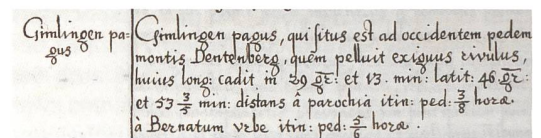 Gimlingen pa-
gus
Gimlingen pagus, qui situs est ad occidentem pedem
montis Dentenberg, quem pelluit exiguus rivulus,
huius long: cadit in 29 gr: et 13. min: latit: 46 gr:
et 53 3/5 min: distans â parochia itin: ped: 3/8 horæ
à Bernatum vrbe itin: ped: 5/6 horæ.